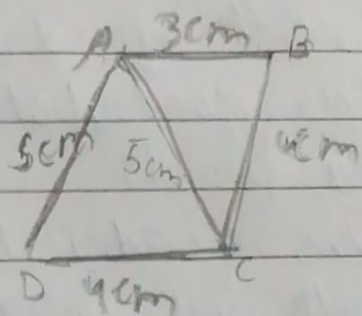 A 3cm B
5cm 5cm 4cm
D 4cm C